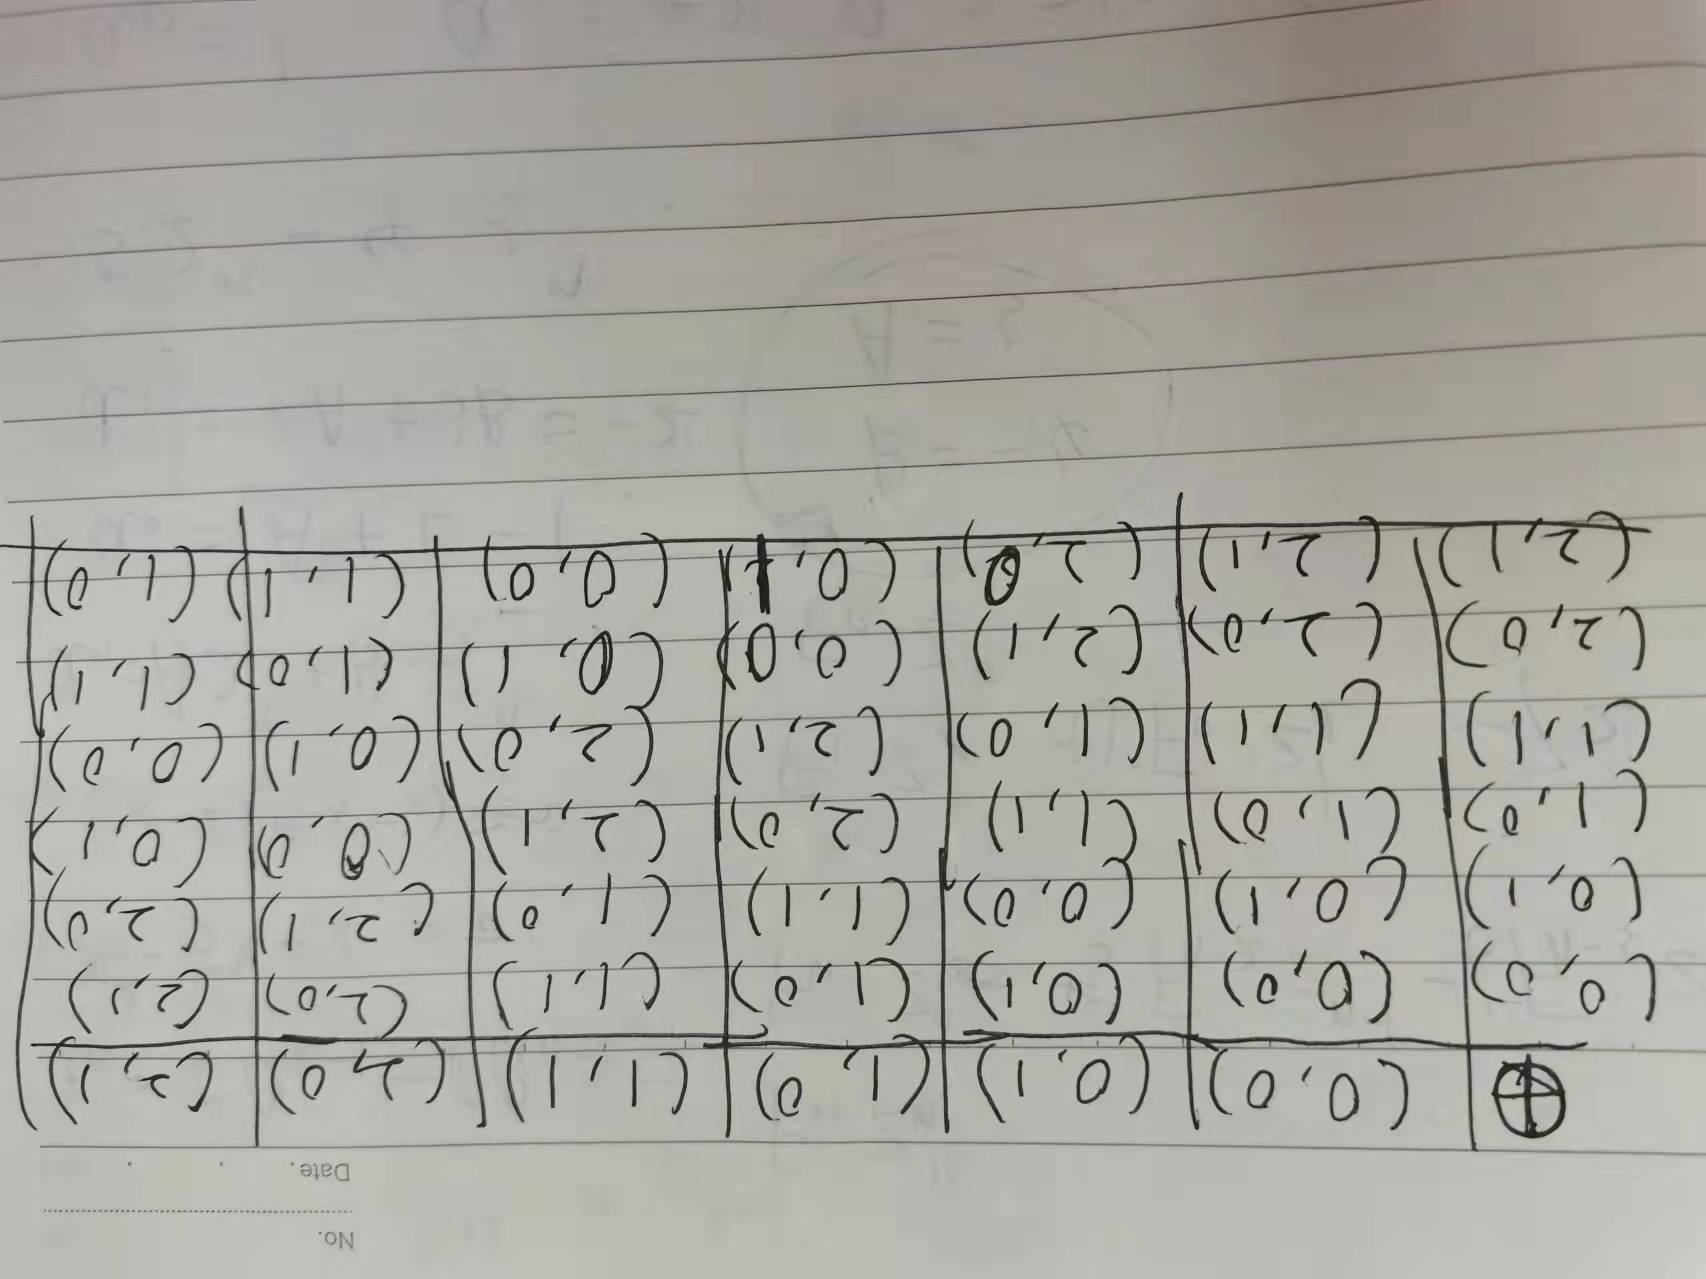 No.
Date.
⊕ (0,0) (0,1) (1,0) (1,1) (2,0) (2,1)
(0,0) (0,0) (0,1) (1,0) (1,1) (2,0) (2,1)
(0,1) (0,1) (0,0) (1,1) (1,0) (2,1) (2,0)
(1,0) (1,0) (1,1) (2,0) (2,1) (0,0) (0,1)
(1,1) (1,1) (1,0) (2,1) (2,0) (0,1) (0,0)
(2,0) (2,0) (2,1) (0,0) (0,1) (1,0) (1,1)
(2,1) (2,1) (2,0) (0,1) (0,0) (1,1) (1,0)